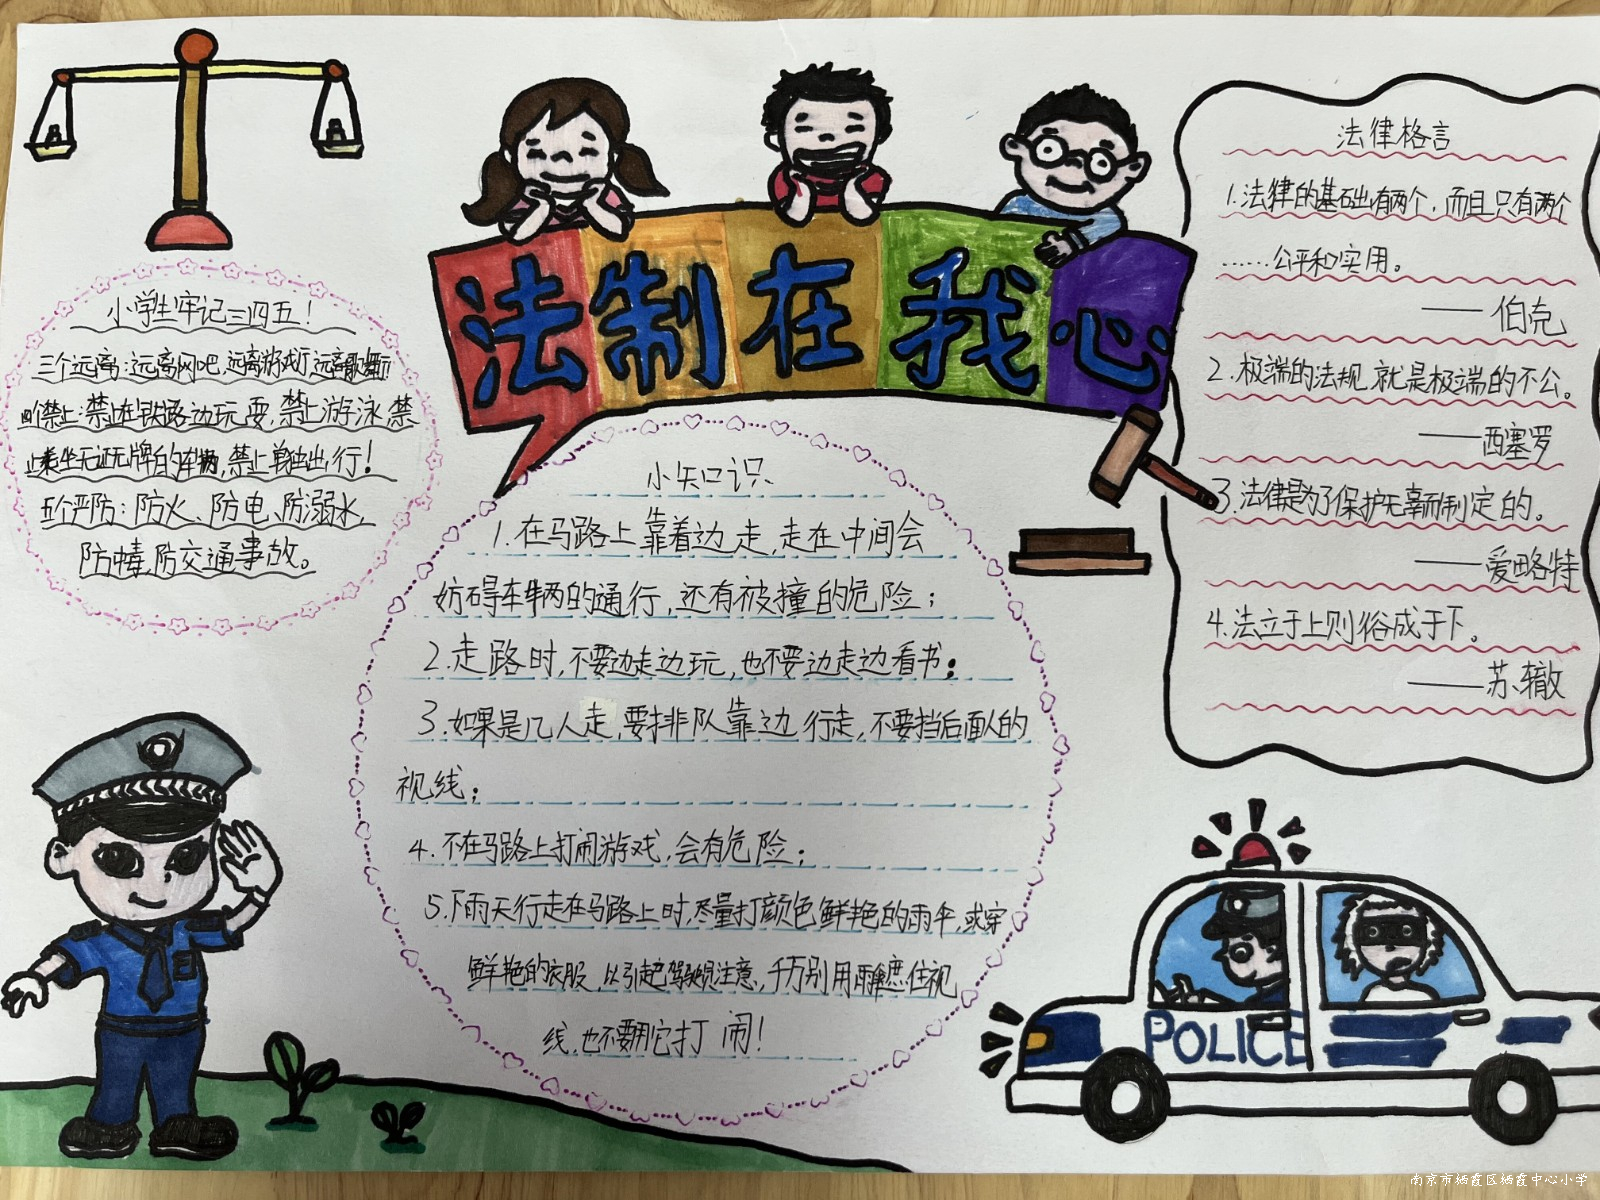 法制在我心
小学生牢记三四五！
三个远离：远离网吧，远离游戏厅，远离歌舞厅
四个禁止：禁止在铁路边玩耍，禁止游泳，禁
止乘坐无证无牌的车辆，禁止单独出行！
五个严防：防火、防电、防溺水、
防毒、防交通事故。
小知识
1.在马路上靠着边走，走在中间会
妨碍车辆的通行，还有被撞的危险；
2.走路时，不要边走边玩，也不要边走边看书；
3.如果是几人走，要排队靠边行走，不要挡后面人的
视线；
4.不在马路上打闹游戏，会有危险；
5.下雨天行走在马路上时，尽量打颜色鲜艳的雨伞，或穿
鲜艳的衣服，以引起驾驶员注意，千万别用雨伞遮住视
线，也不要用它打闹！
法律格言
1.法律的基础有两个，而且只有两个
……公平和实用。
——伯克
2.极端的法规，就是极端的不公。
——西塞罗
3.法律是为了保护无辜而制定的。
——爱略特
4.法立于上则俗成于下。
——苏辙
POLICE
南京市栖霞区栖霞中心小学